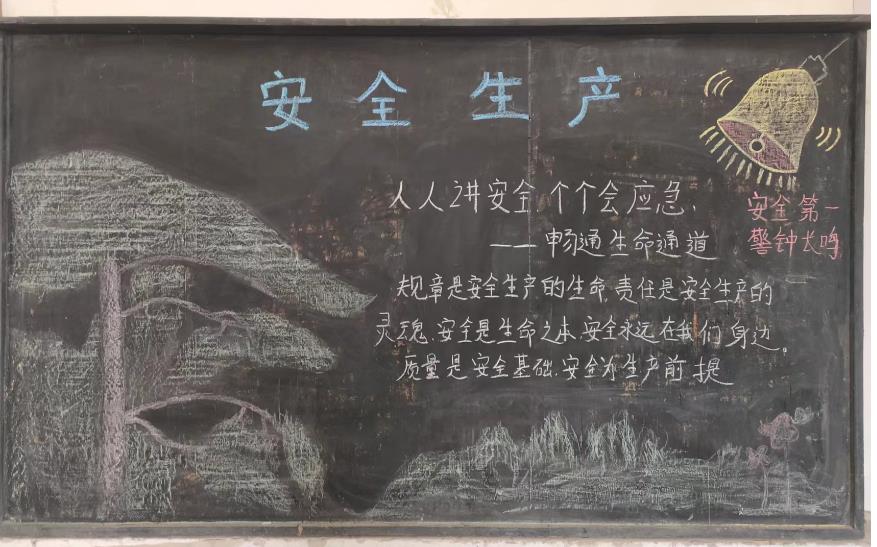 安全生产
人人讲安全、个个会应急、
——畅通生命通道
安全第一
警钟长鸣
规章是安全生产的生命,责任是安全生产的
灵魂,安全是生命之本,安全永远在我们身边。
质量是安全基础,安全为生产前提